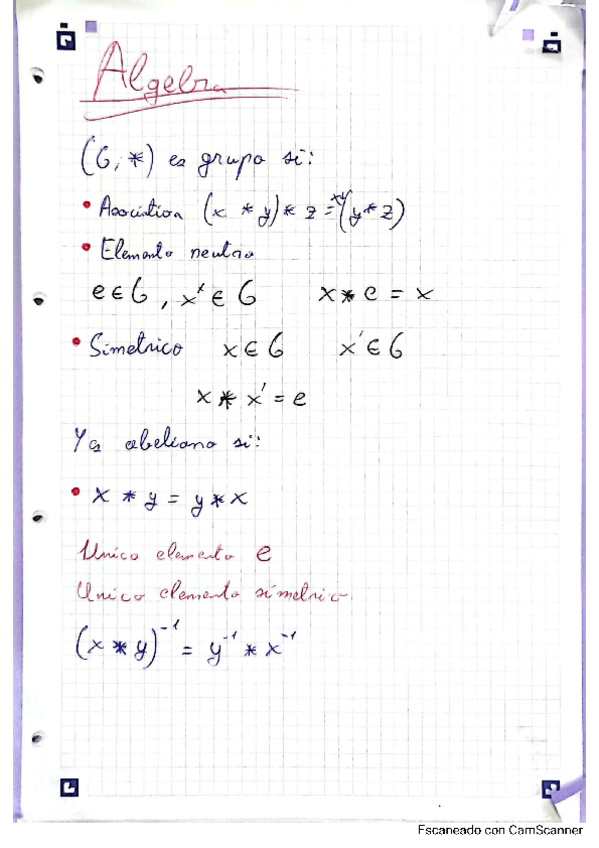 Algebra
(G, *) es grupo si:
• Asociativa (x * y) * z = x*(y * z)
• Elemento neutro
e ∈ G, x' ∈ G x * e = x
• Simetrico x ∈ G x' ∈ G
x * x' = e
Y es abeliano si:
• x * y = y * x
Unico elemento e
Unico elemento simetrico.
(x * y)⁻¹ = y⁻¹ * x⁻¹
Escaneado con CamScanner